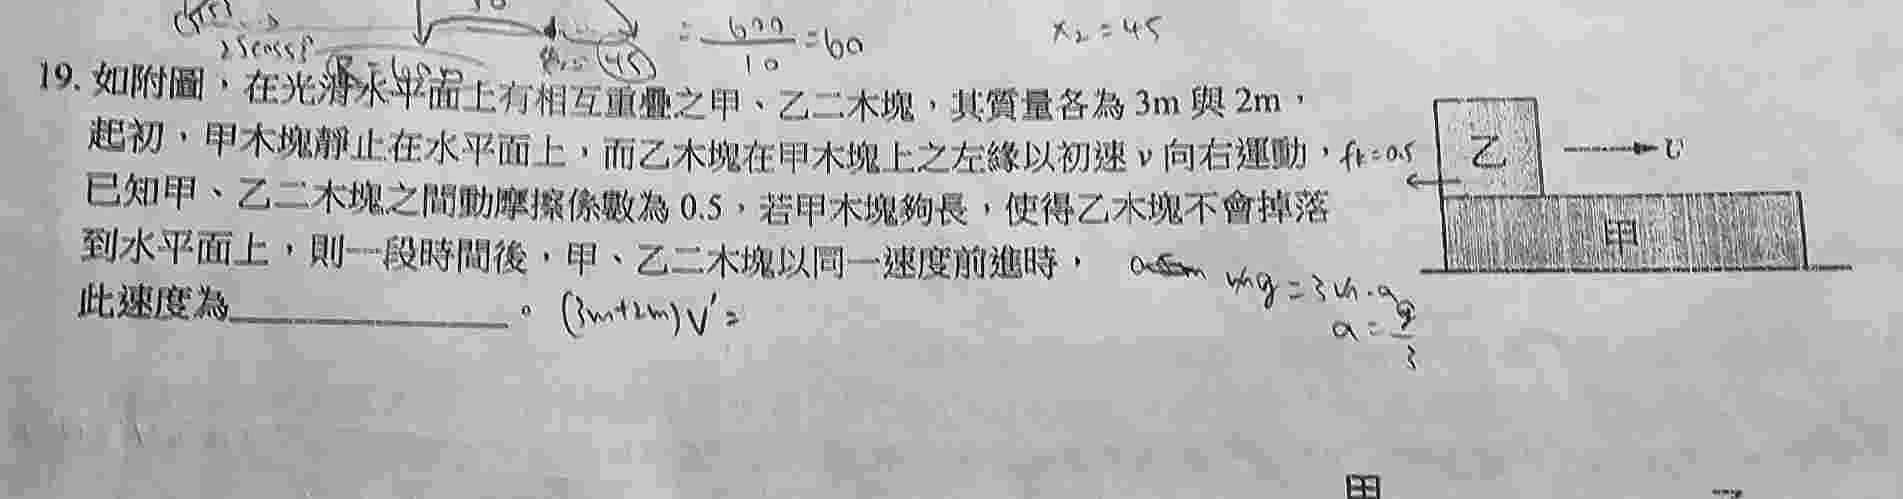 25cosθ
= 600/10 = 60
x₂ = 45
19. 如附圖，在光滑水平面上有相互重疊之甲、乙二木塊，其質量各為 3m 與 2m，
起初，甲木塊靜止在水平面上，而乙木塊在甲木塊上之左緣以初速 v 向右運動，
已知甲、乙二木塊之間動摩擦係數為 0.5，若甲木塊夠長，使得乙木塊不會掉落
到水平面上，則一段時間後，甲、乙二木塊以同一速度前進時，
此速度為__________。
(3m+2m)V' =
fk=0.5
乙
v
甲
mg = 3m·a
a = g/3
甲